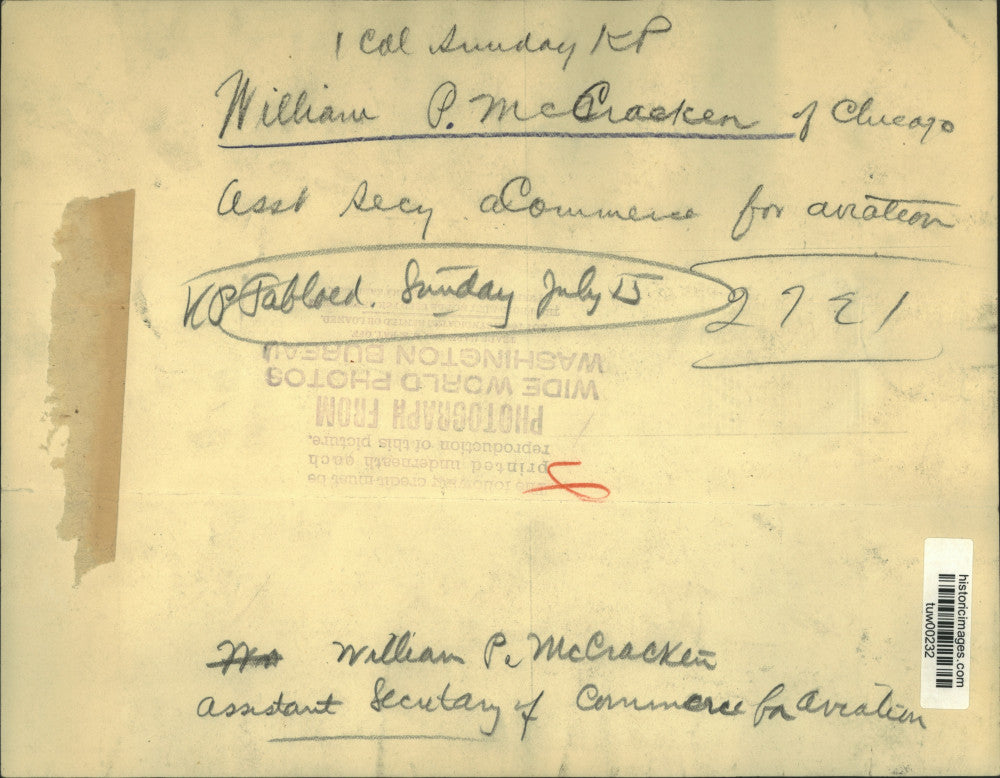 1 Col Sunday KP
William P. McCracken of Chicago
Asst Secy Commerce for aviation
KP Tabloid. Sunday July 15
2721
WASHINGTON BUREAU
WIDE WORLD PHOTOS
PHOTOGRAPH FROM
reproduction of this picture.
printed underneath each
The following credit must be
historicimages.com
tuw00232
William P. McCracken
Assistant Secretary of Commerce for Aviation